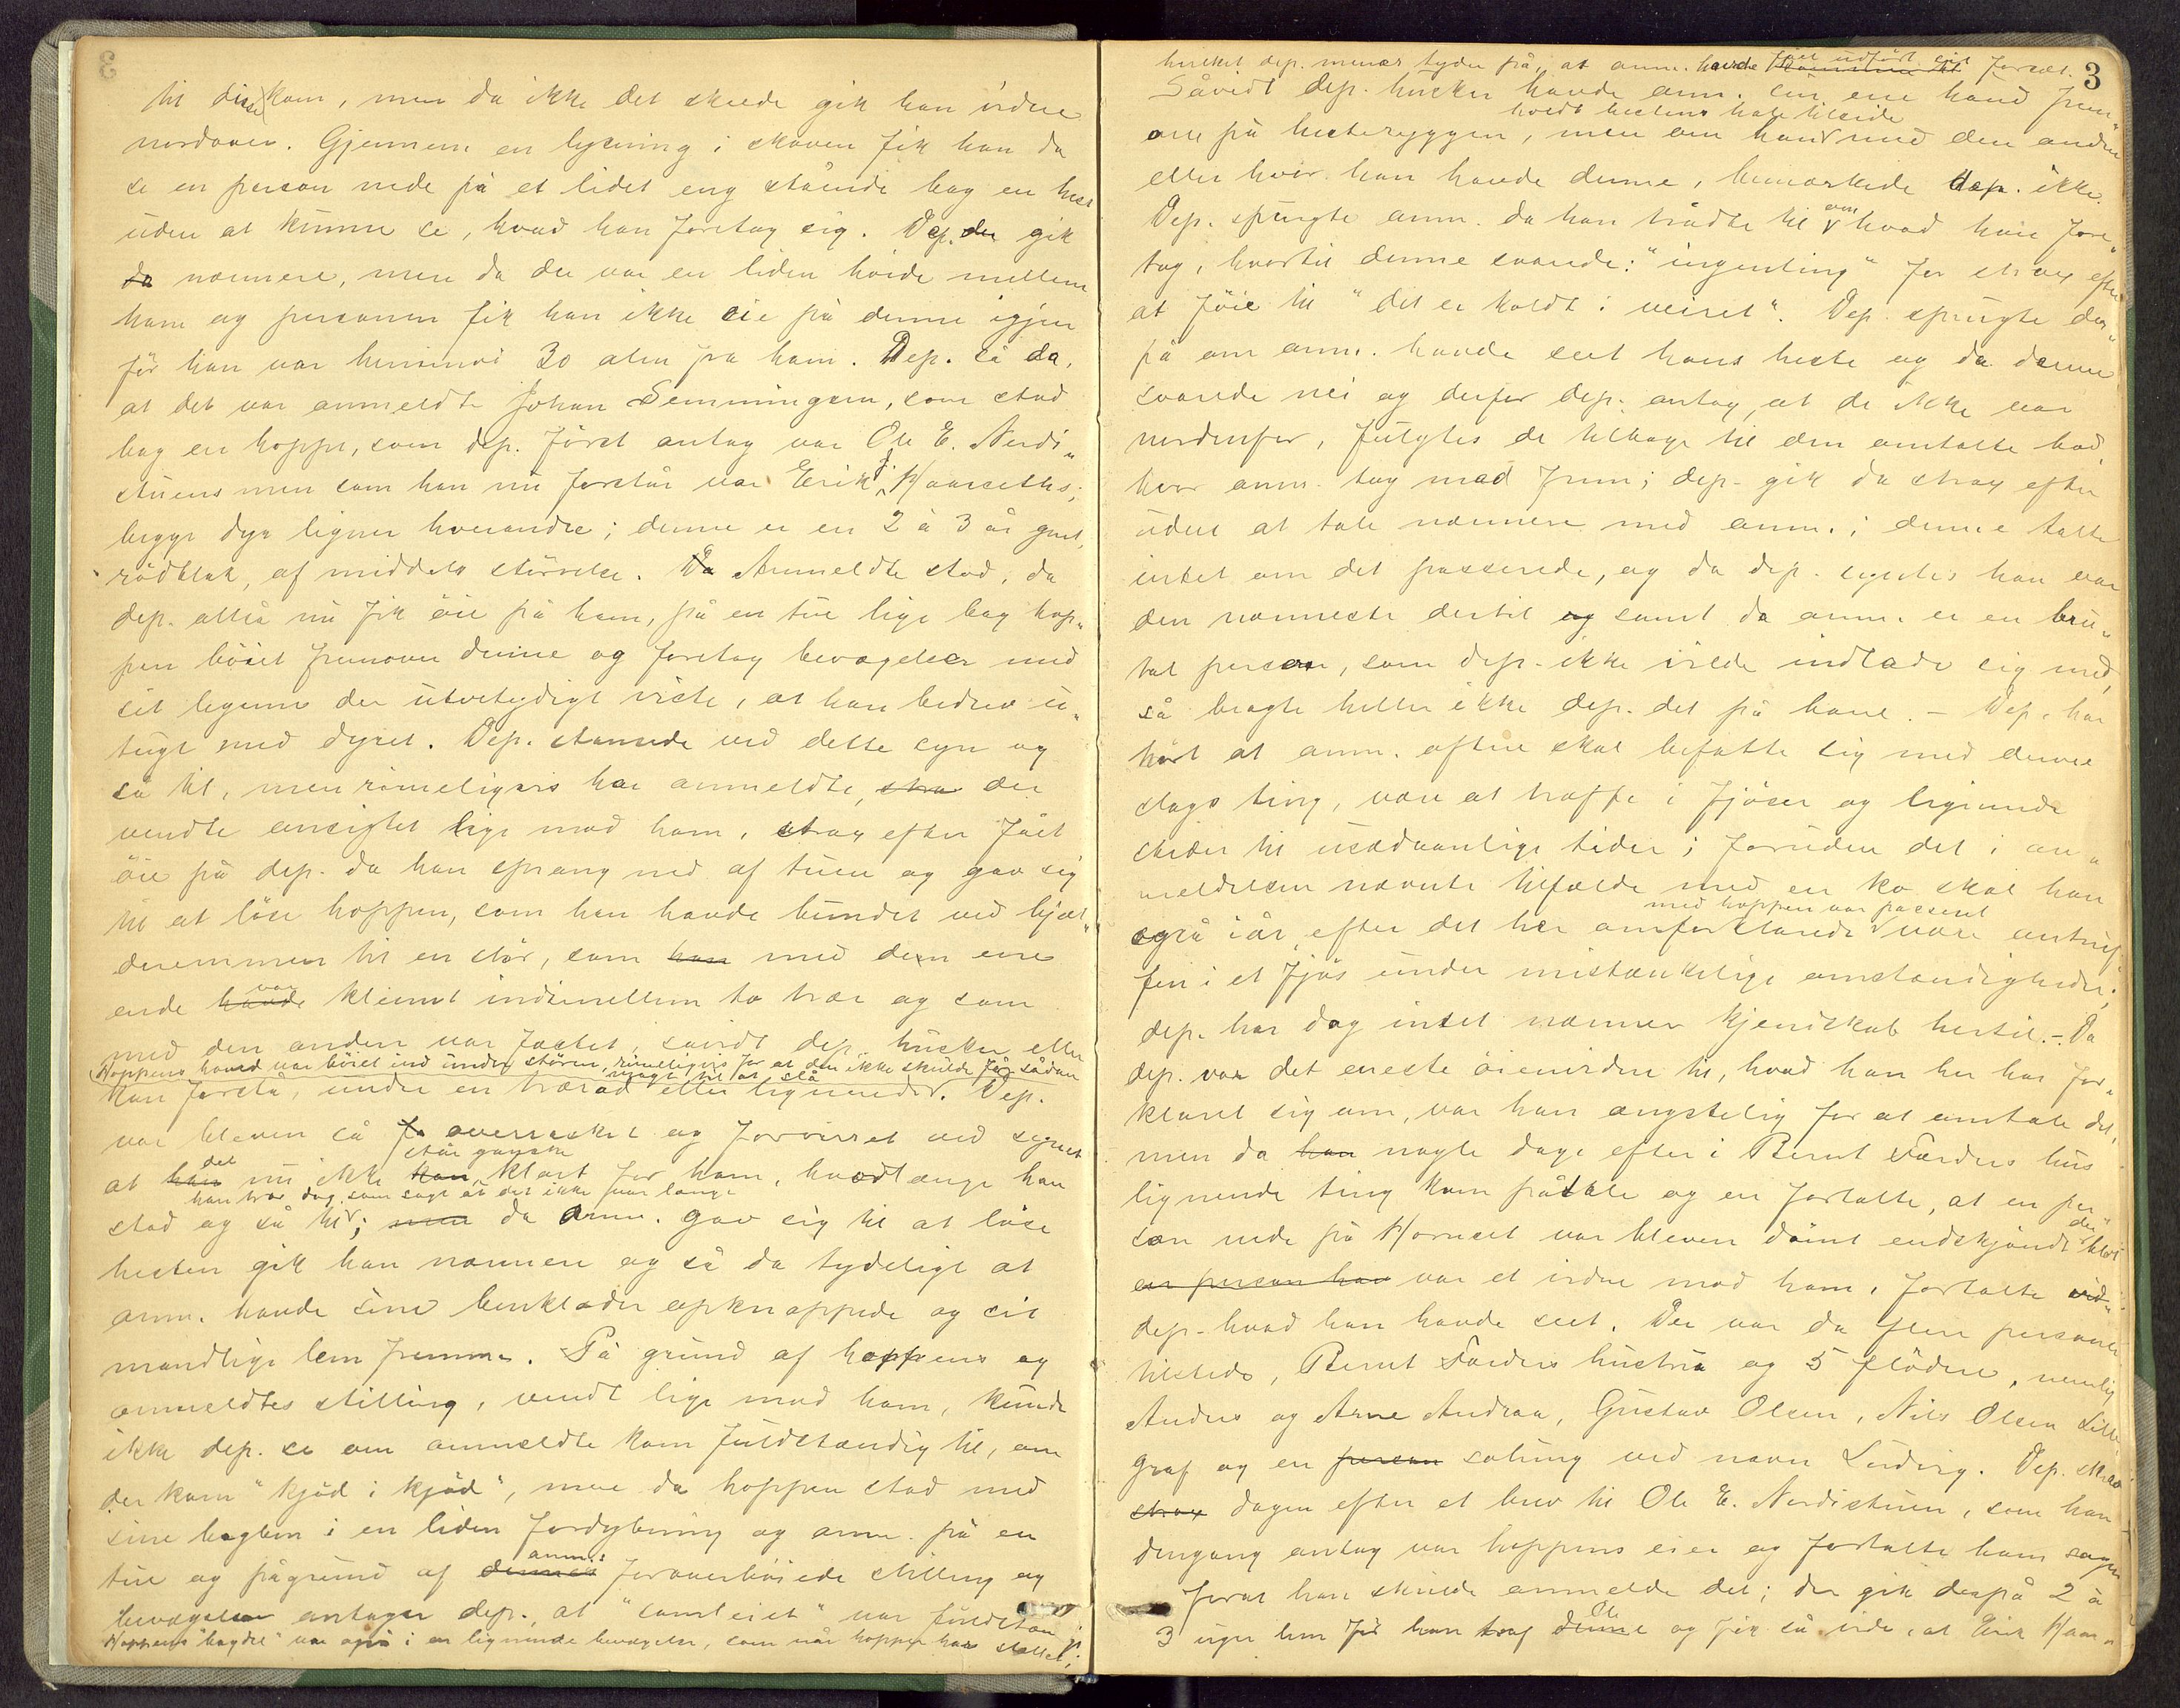 til disse kom, men da ikke det skeede gik han videre
nordover. Gjennem en lysning i skoven fik han da
se en person nede på et lidet eng stående bag en hest
uden at kunne se, hvad han foretog sig. Dep. gik
da nærmere, men da der var en liden höide mellem
ham og personen fik han ikke öie på denne igjen
för han var henimod 30 alen fra ham. Dep. så da,
at det var anmeldte Johan Semmingsen, som stod
bag en hoppe, som dep. först antog var Ole E. Nordi„
stuens men som han nu forstår var Erik J. Haarseths;
begge dyr ligner hverandre; denne er en 2 à 3 år gml,
rödblak, af middels störrelse. Anmeldte stod, da
dep. altså nu fik öie på ham, på en tue lige bag hop„
pen böiet fremover denne og foretog bevægelser med
sit legeme der utvetydigt viste, at han bedrev u„
tugt med dyret. Dep. stansede ved dette syn og
så til, men rimeligvis har anmeldte, der
vendte ansigtet lige mod ham, strax efter fået
öie på dep. da han sprang ned af tuen og gav sig
til at löse hoppen, som han havde bundet ved hjæl„
deremmen til en stör, som med den ene
ende var klemt indimellem to trær og som
med den anden var fæstet, såvidt dep. husker eller
Hoppens hoved var böiet ind under stören, rimeligvis for at den ikke skulde få sådan
magt til at slå
kan forstå, under en trærod eller lignende. Dep.
var bleven så overrasket og forvirret ved synet
at det nu ikke står ganske klart for ham, hvorlænge han
han tror dog som sagt at det ikke var længe
stod og så til; da anm. gav sig til at löse
hesten gik han nærmere og så da tydeligt at
anm. havde sine benklæder opknappede og sit
mandlige lem fremme. På grund af hoppens og
anmeldtes stilling, vendt lige mod ham, kunde
ikke dep. se om anmeldte kom fuldstændig til, om
der kom "kjöd i kjöd", men da hoppen stod med
sine bagben i en liden fordybning og anm. på en
tue og pågrund af anm:s foroverböiede stilling og
bevægelser antager dep., at "samleiet" var fuldstæn
Hoppens "bagdel" var også i en lignende bevægelse, som når hopper har stallet;
3
hvilket dep. mener tyder på, at anm. havde fået udfört sit forsæt.
Såvidt dep. husker havde anm. sin ene hånd frem„
holdt hestens hale tilside
me på hesteryggen, men om han med den anden
eller hvor han havde denne, bemærkede dep. ikke.
Dep. spurgte anm. da han trådte til om hvad han fore„
tog, hvortil denne svarede: "ingenting" for strax efter
at föie til "det er koldt i veiret". Dep. spurgte der„
på om anm. havde seet hans heste og da denne
svarede nei og derfor dep. antog, at de ikke var
nordenfor, fulgtes de tilbage til den omtalte bod,
hvor anm. tog mad frem; dep. gik da strax efter
uden at tale nærmere med anm.; denne talte
intet om det passerede, og da dep. syntes han var
den nærmeste dertil samt da anm. er en bru„
tal person, som dep. ikke vilde indlade sig med,
så bragte heller ikke dep. det på bane. – Dep. har
hört at anm. oftere skal befatte sig med denne
slags ting, være at træffe i fjöser og lignende
steder til usædvanlige tider; foruden det i an„
meldelsen nævnte tilfælde med en ko skal han
med hoppen var passeret
også iår, efter det her omforklarede være antruf„
fen i et fjös under mistænkelige omstændigheder;
dep. har dog intet nærmere kjendskab hertil. – Da
dep. var det eneste öienvidne til, hvad han her har for„
klaret sig om, var han ængstelig for at omtale det,
men da nogle dage efter i Bernt Færders hus
lignende ting kom påtale og en fortalte, at en per„
son nede på Hornset var bleven dömt endskjöndt der blot
var et vidne mod ham, fortalte
dep. hvad han havde seet. Der var da flere personer
tilstede, Bernt Færders hustru og 5 flödere, nemlig
Anders og Arne Andraa, Gustav Olsen, Nils Olsen Lille
graf og en solung ved navn Ludvig. Dep. skrev
dagen efter et brev til Ole E. Nordistuen, som han
dengang antog var hoppens eier og fortalte ham sagen
forat han skulde anmelde det; der gik derpå 2 à
3 uger hen för han traf Ole og fik så vide, at Erik Haar„